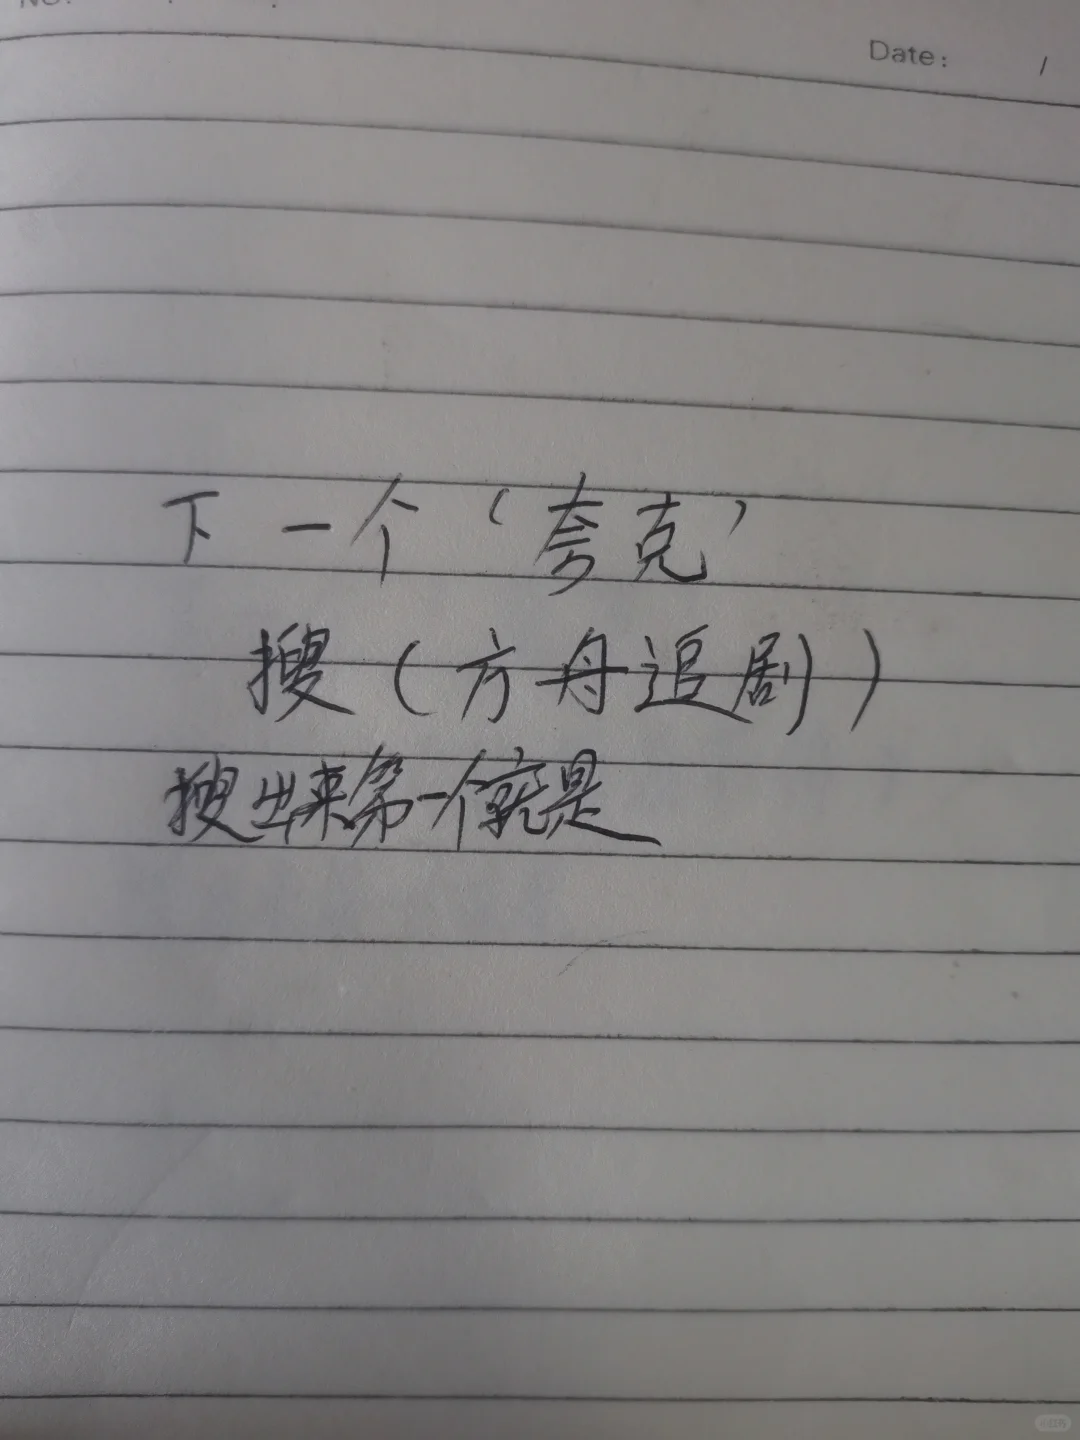 NO.
Date: /
下一个‘夸克’
搜(方舟追剧)
搜出来第一个就是
小红书